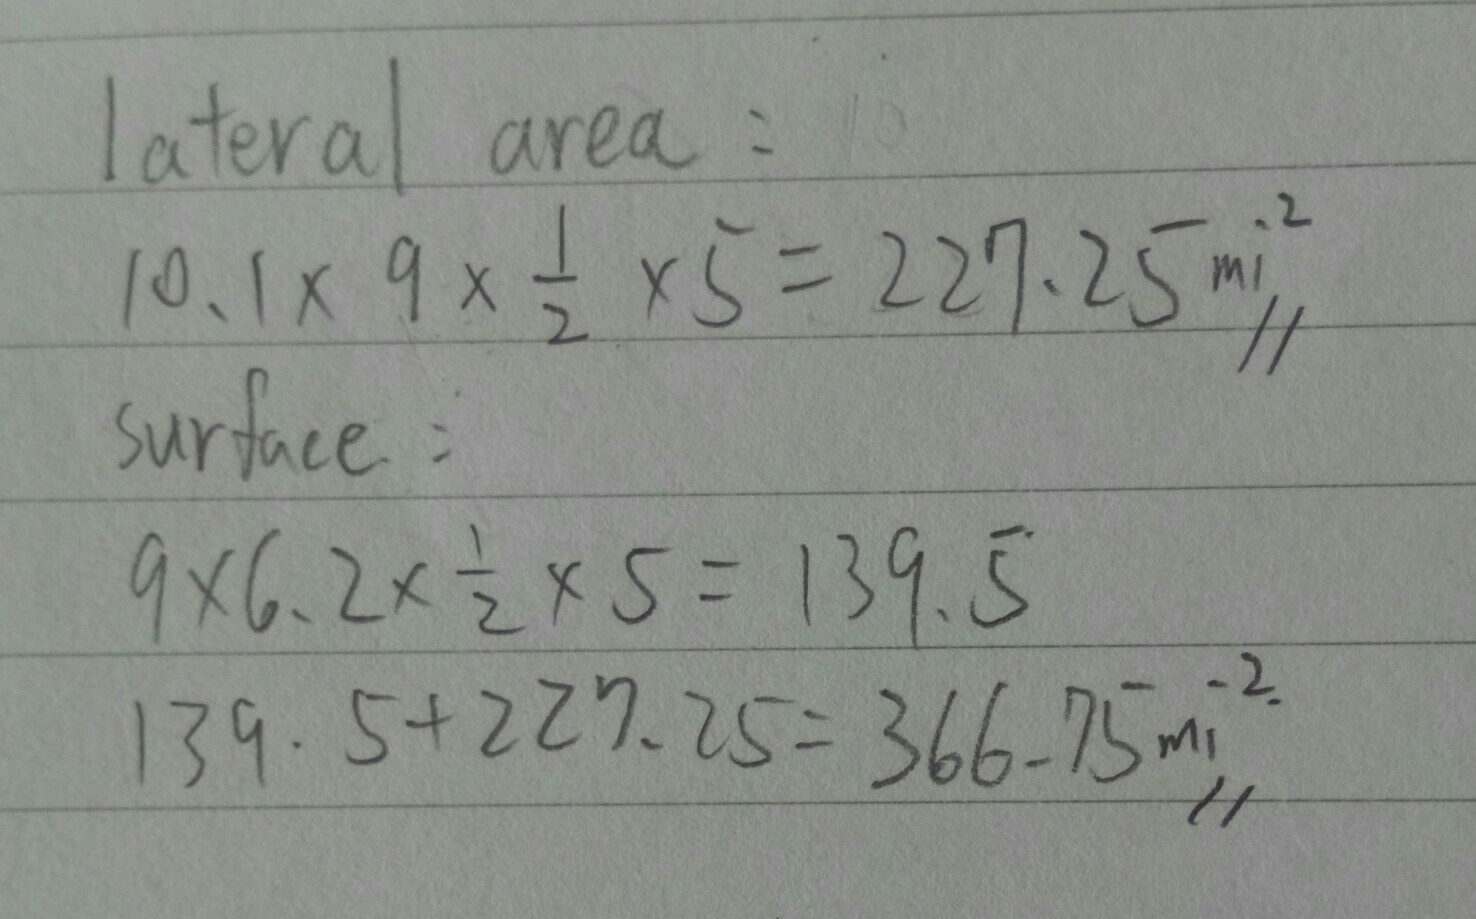 lateral area :
10.1 x 9 x 1/2 x 5 = 227.25 mi²
surface :
9 x 6.2 x 1/2 x 5 = 139.5
139.5 + 227.25 = 366.75 mi²